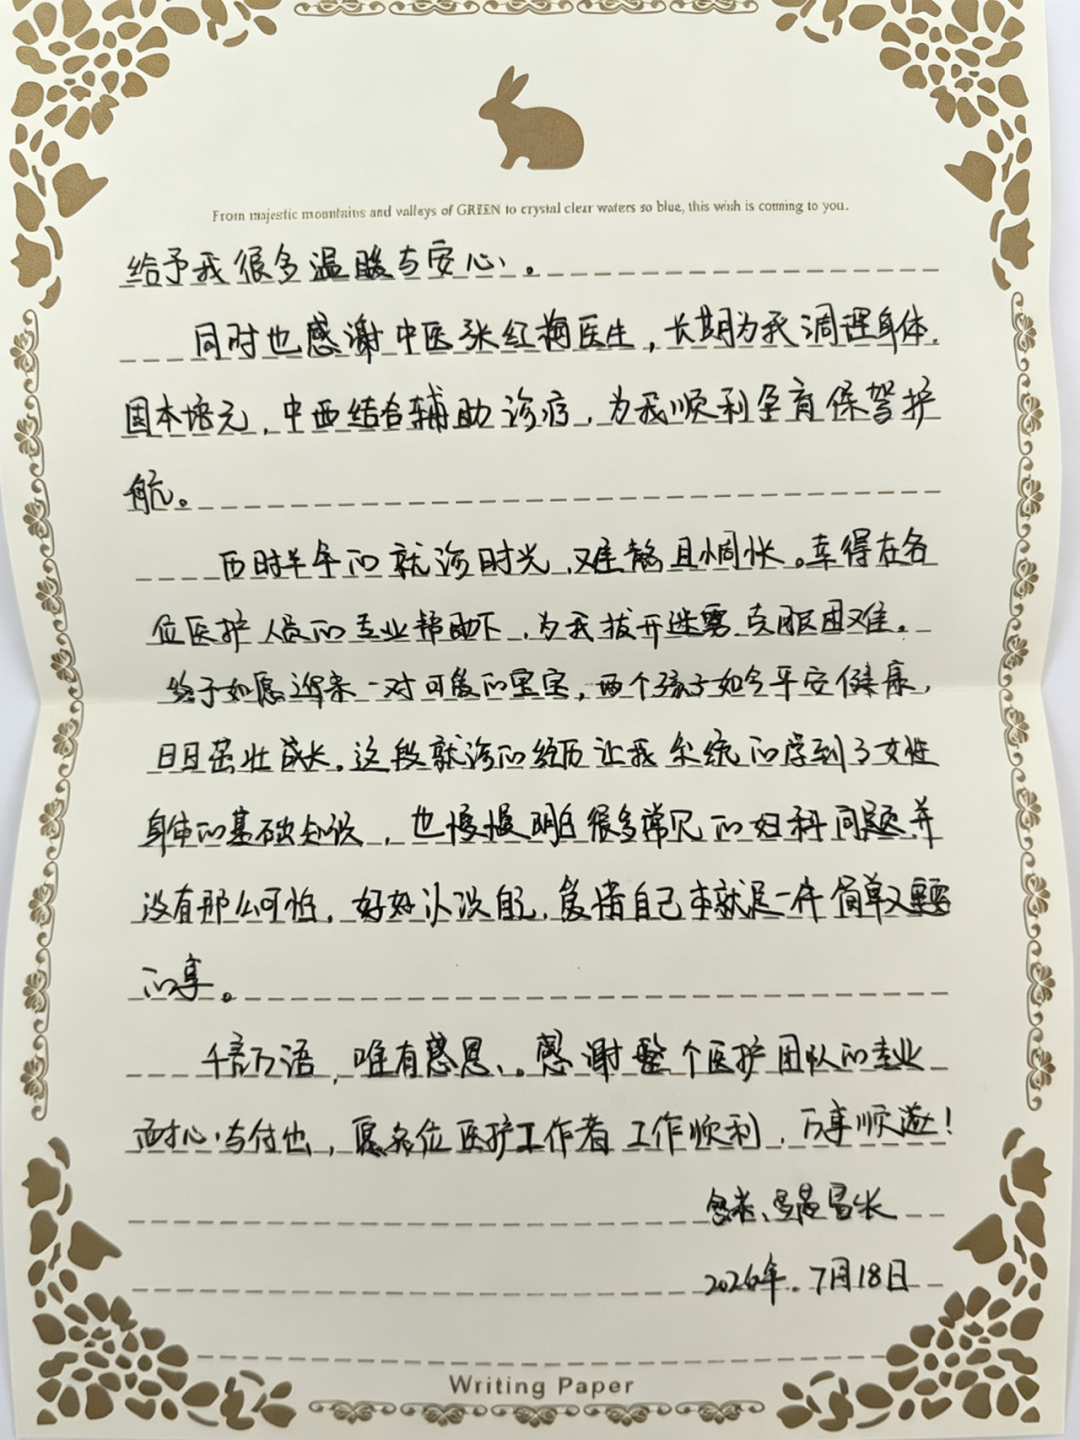 From majestic mountains and valleys of GREEN to crystal clear waters so blue, this wish is coming to you.
给予我很多温暖与安心。
同时也感谢中医张红梅医生，长期为我调理身体，
固本培元，中西结合辅助诊疗，为我顺利孕育保驾护
航。
历时半年的就诊时光，难熬且惆怅。幸得在各
位医护人员的专业帮助下，为我拔开迷雾克服困难。
终于如愿迎来一对可爱的宝宝，两个孩子如今平安健康，
日日茁壮成长。这段就诊的经历让我系统的学到了女性
身体的基础知识，也慢慢明白很多常见的妇科问题并
没有那么可怕，好好认识自己，爱惜自己本就是一件简单又重要
的事。
千言万语，唯有感恩。感谢整个医护团队的专业
耐心与付出，愿各位医护工作者工作顺利，万事顺遂！
家长
2026年.7月18日
Writing Paper